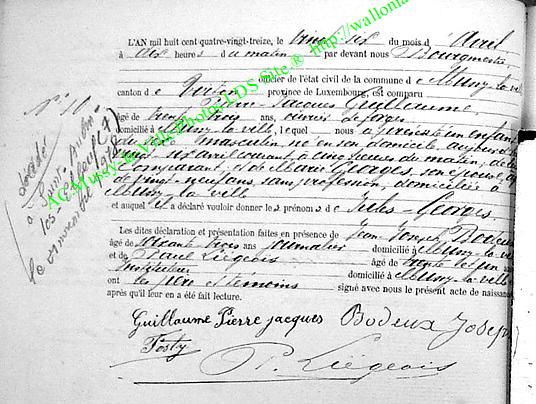 L'AN mil huit cent quatre-vingt-treize, le vingt six du mois d'Avril
à dix heures du matin par devant nous Bourgmestre
officier de l'état civil de la commune de Mussy la ville
canton de Virton province de Luxembourg, est comparu
Pierre Jacques Guillaume
âgé de trente trois ans,
domicilié à Mussy la ville, lequel nous a présenté un enfant
du sexe masculin né en son domicile aujourd'hui
vingt six avril courant à cinq heures du matin, de lui
Comparant, et de Marie Georges, son épouse, âgée
de vingt neuf ans, sans profession, domiciliée à
Mussy la ville
et auquel il a déclaré vouloir donner les prénoms de Jules-Georges
Les dites déclaration et présentation faites en présence de Jean-Joseph Bodeux
âgé de soixante trois ans journalier domicilié à Mussy la ville
et de Paul Liégeois âgé de
domicilié à Mussy la ville
ont les père et témoins signé avec nous le présent acte de naissance
après qu'il leur en a été fait lecture.
Guillaume Pierre jacques Bodeux Joseph
Tosty
P. Liégeois
N° 16
Décédé
à Saint-
AC Mussy-la-Ville Photos LDS Site @ http://wallonia